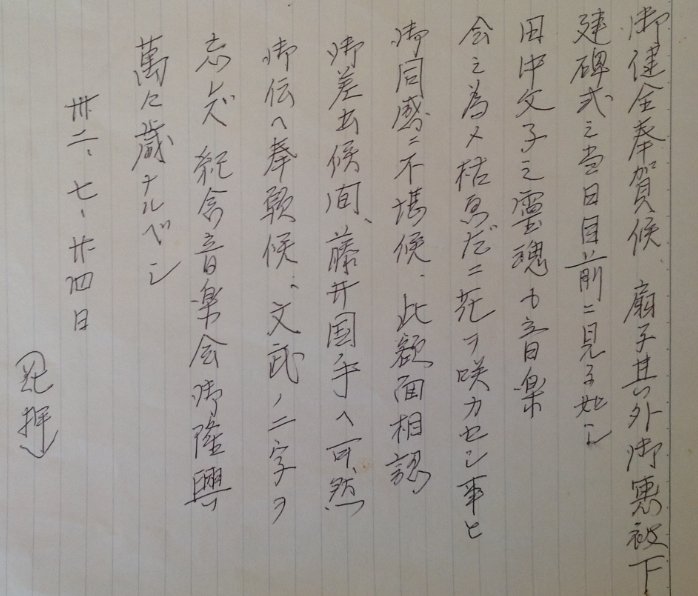 御健全奉賀候、扇子其外御恵被下
建碑式之当日目前ニ見る如し
田中父子之霊魂も音楽
会之為メ枯骨だニ花ヲ咲カセシ事と
御同感ニ不堪候、此額面相認
御差出候間、藤井国手へ可然
御伝へ奉願候、文武ノ二字ヲ
忘レズ紀念音楽会御隆興
萬々歳ナルベシ
卅二、七、廿四日
拝